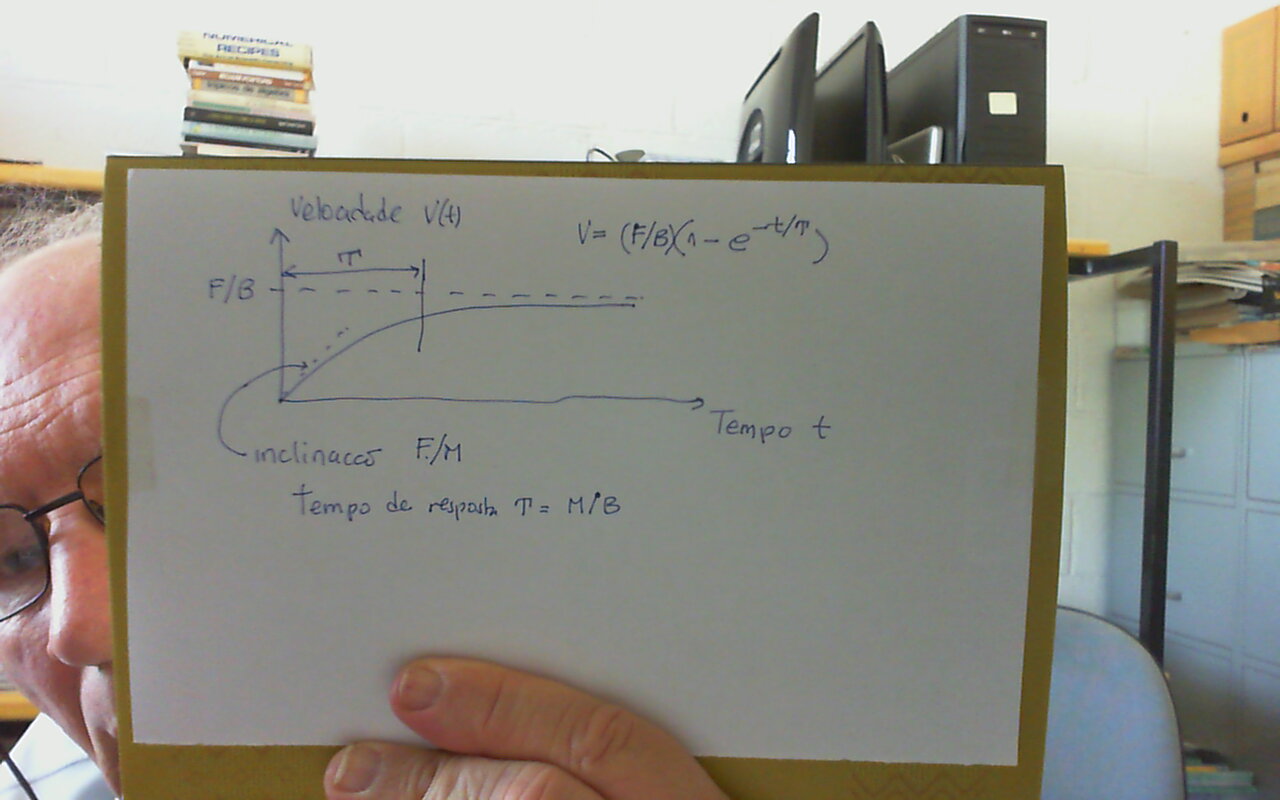 NUMERICAL
RECIPES
Velocidade V(t)
V = (F/B)(1 - e^-t/T)
T
F/B
Tempo t
inclinacão F/M
tempo de resposta T = M/B